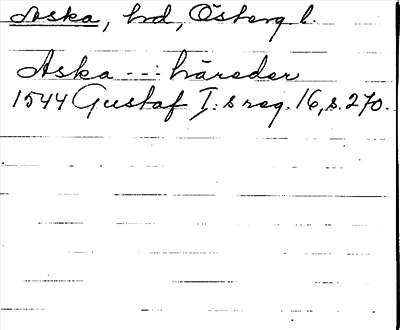 Aska, hd, Österg l.
Aska --- häreder
1544 Gustaf I:s reg. 16, s. 270.